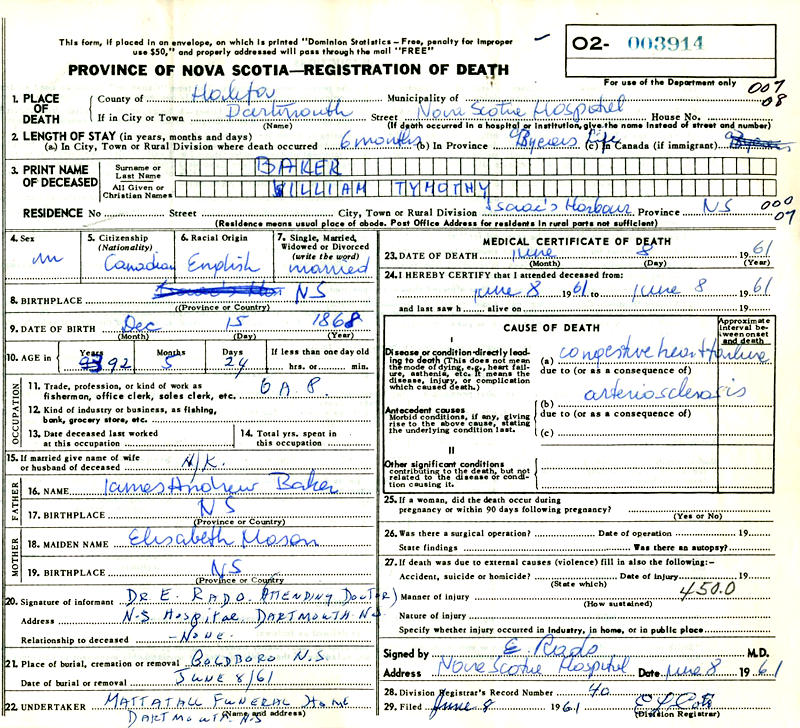 This form, if placed in an envelope, on which is printed "Dominion Statistics—Free, penalty for improper
use $50," and properly addressed will pass through the mail "FREE"
O2- 003914
PROVINCE OF NOVA SCOTIA—REGISTRATION OF DEATH
For use of the Department only
007
08
1. PLACE OF DEATH
County of Halifax Municipality of
If in City or Town Dartmouth Street Nova Scotia Hospital House No.
(Name) (If death occurred in a hospital or institution, give the name instead of street and number)
2. LENGTH OF STAY (in years, months and days)
(a) In City, Town or Rural Division where death occurred 6 months (b) In Province Life (c) in Canada (if immigrant)
3. PRINT NAME OF DECEASED
Surname or Last Name BAKER
All Given or Christian Names WILLIAM TYMOTHY
RESIDENCE No Street City, Town or Rural Division Isaac's Harbour Province NS
000
07
(Residence means usual place of abode. Post Office Address for residents in rural parts not sufficient)
4. Sex m
5. Citizenship (Nationality) Canadian
6. Racial Origin English
7. Single, Married, Widowed or Divorced (write the word) married
8. BIRTHPLACE NS
(Province or Country)
9. DATE OF BIRTH Dec 15 1868
(Month) (Day) (Year)
10. AGE in Years 92 Months 5 Days 24 If less than one day old hrs. or min.
OCCUPATION
11. Trade, profession, or kind of work as fisherman, office clerk, sales clerk, etc. O A. 8
12. Kind of industry or business, as fishing, bank, grocery store, etc.
13. Date deceased last worked at this occupation
14. Total yrs. spent in this occupation
15. If married give name of wife or husband of deceased N/K.
FATHER
16. NAME James Andrew Baker
17. BIRTHPLACE NS
(Province or Country)
MOTHER
18. MAIDEN NAME Elisabeth Mason
19. BIRTHPLACE NS
(Province or Country
20. Signature of informant DR E. RADO (ATTENDING DOCTOR)
Address N-S Hospital, DARTMOUTH N.S
Relationship to deceased -NONE-
21. Place of burial, cremation or removal GOLDBORO N.S
Date of burial or removal JUNE 8/61
22. UNDERTAKER MATTATALL FUNERAL HOME
DARTMOUTH N.S
(Name and address)
MEDICAL CERTIFICATE OF DEATH
23. DATE OF DEATH June 8 1961
(Month) (Day) (Year)
24. I HEREBY CERTIFY that I attended deceased from:
June 8 1961 to June 8 1961
and last saw h alive on 19
CAUSE OF DEATH
Approximate interval between onset and death
I
Disease or condition directly leading to death (This does not mean the mode of dying, e.g., heart failure, asthenia, etc. It means the disease, injury, or complication which caused death.)
(a) congestive heart failure
due to (or as a consequence of)
Antecedent causes
Morbid conditions, if any, giving rise to the above cause, stating the underlying condition last.
(b) arteriosclerosis
due to (or as a consequence of)
(c)
II
Other significant conditions
contributing to the death, but not related to the disease or condition causing it.
25. If a woman, did the death occur during
pregnancy or within 90 days following pregnancy?
(Yes or No)
26. Was there a surgical operation? Date of operation 19
State findings Was there an autopsy?
27. If death was due to external causes (violence) fill in also the following:-
Accident, suicide or homicide? Date of injury 19
(State which)
Manner of injury 450.0
(How sustained)
Nature of injury
Specify whether injury occurred in industry, in home, or in public place
Signed by E. Rado M.D.
Address Nova Scotia Hospital Date June 8 1961
28. Division Registrar's Record Number 40
29. Filed June 8 1961
(Division Registrar)